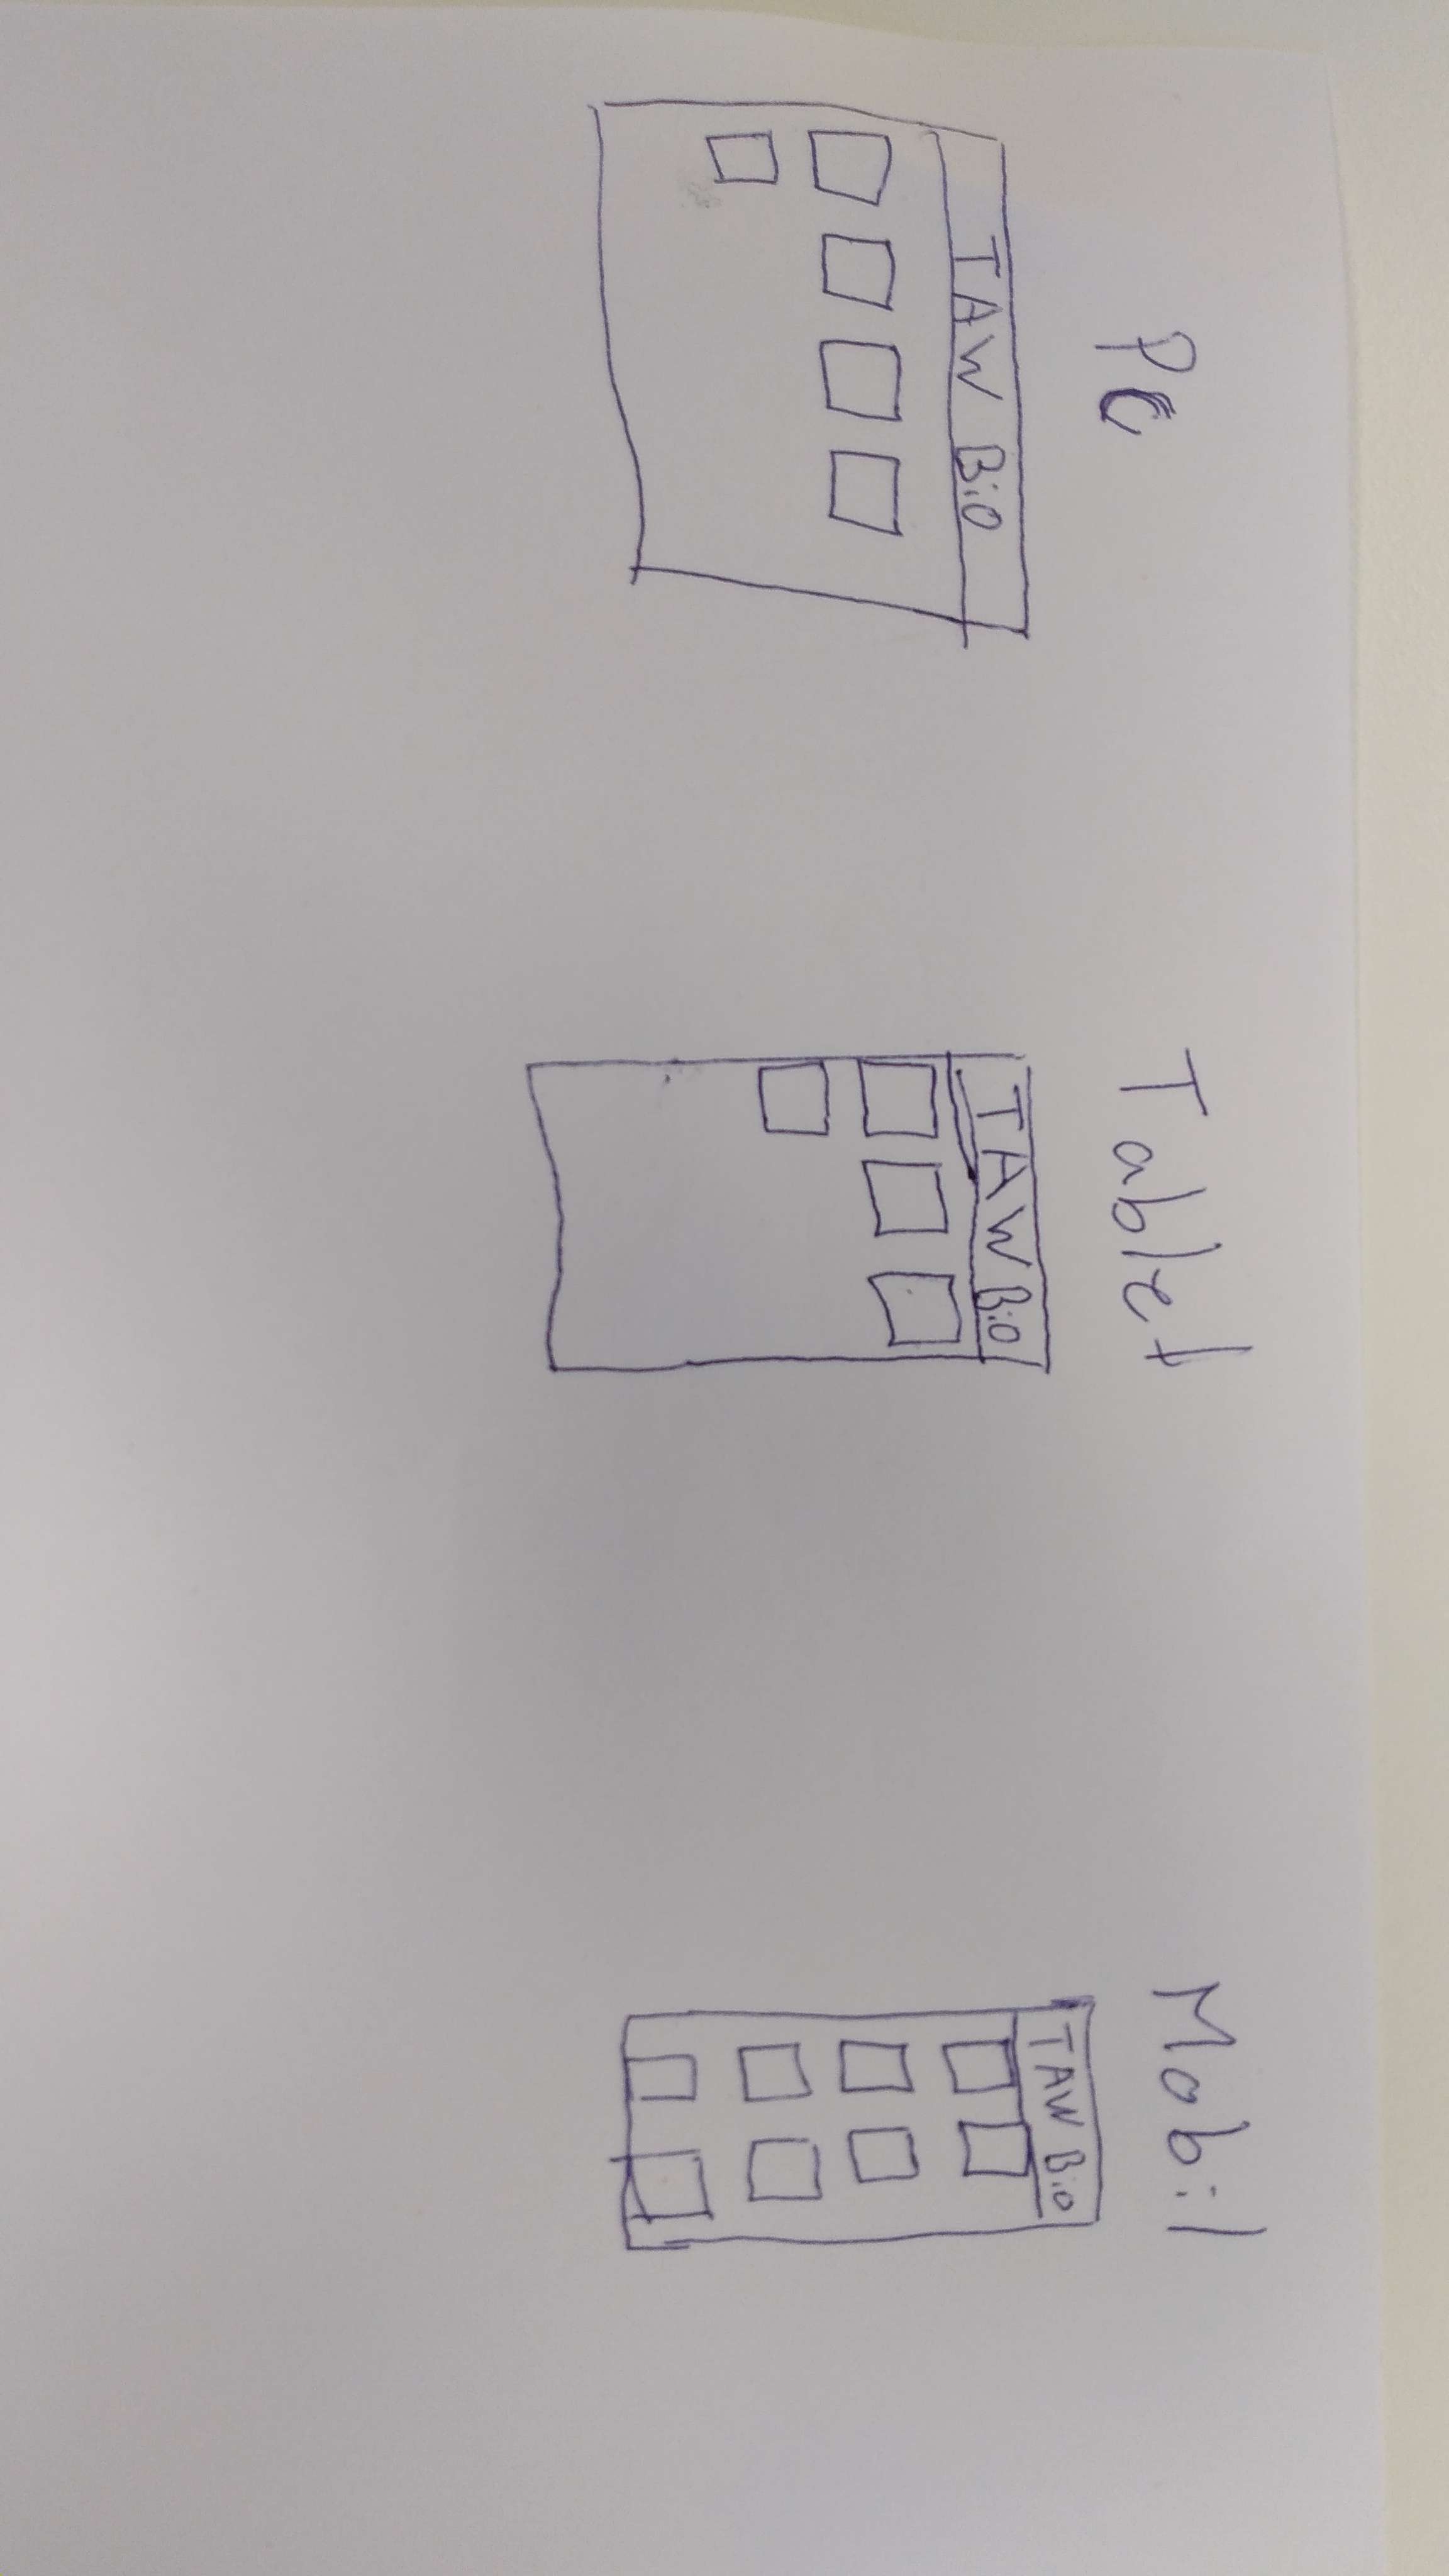 PC
TAW BiO
Tablet
TAW BiO
Mobil
TAW Bio